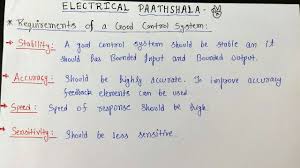 ELECTRICAL PAATHSHALA
* Requirements of a Good Control System:
→ Stability: A good control system should be stable an it
should has Bounded Input and Bounded output.
→ Accuracy: Should be highly accurate. To improve accuracy
feedback elements can be used.
→ Speed: Speed of response should be high.
→ Sensitivity: Should be less sensitive.